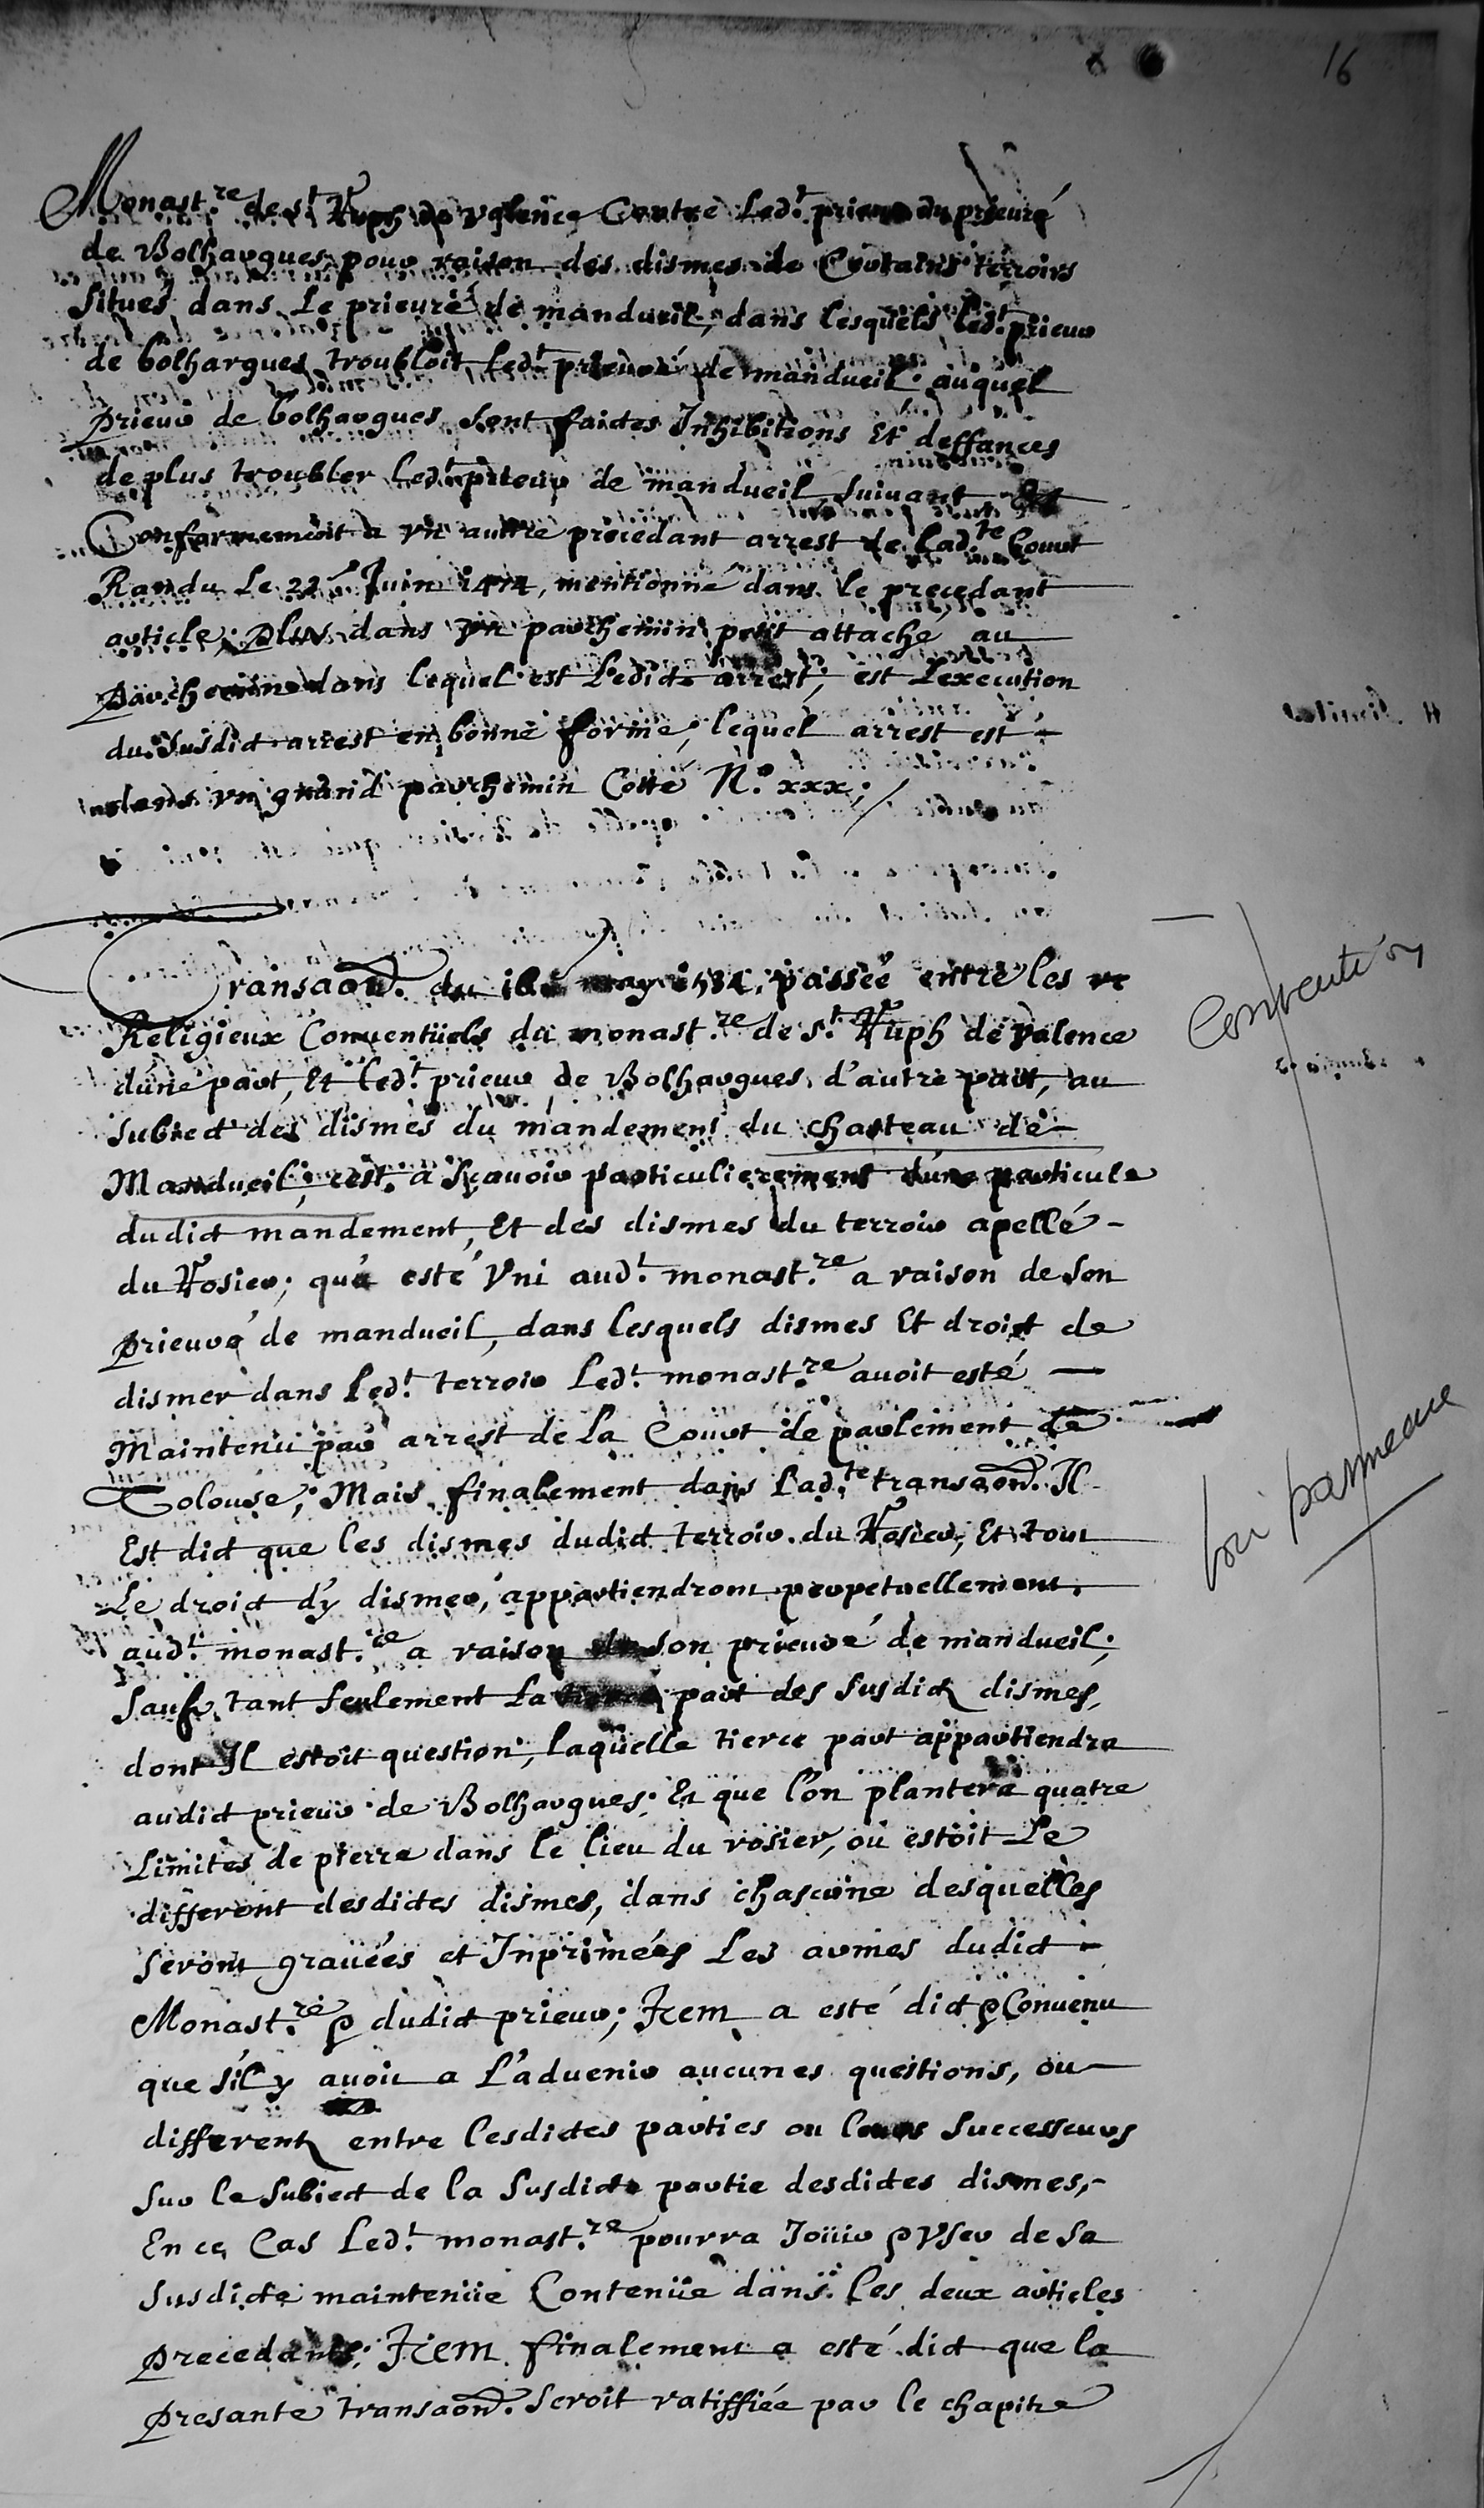 16
Monast.re de st Ruph de valence Contre Led.t prieur du prieuré
de Bolhargues, pour raison des dismes de Certains terroirs
situés dans Le prieuré de mandueil, dans lesquels led.t prieur
de bolhargues troubloit led.t prieuré de mandueil; auquel
prieur de bolhargues sont faictes Inhibitions Et deffances
de plus troubler led.t prieur de mandueil, suivant Et
Conformement a vn auttre precedant arrest de Lad.te Court
Randu Le 22e Juin 1474, mentionné dans le precedant
article; plus dans vn parchemin petit attaché au
parchemin dans lequel est Ledict arrest, est L'execution
du susdict arrest en bonne forme, lequel arrest est
dans vn grand parchemin Cotté N.o xxx;
Transaon. du may passée entre les
Religieux Conventüels du monast.re de s.t Ruph de valence
d'une part, Et led.t prieur de Bolhargues d'autre part, au
subiect des dismes du mandement du chasteau de
Mandueil; c'est a sçauoir particulierement d'une particule
dudict mandement, Et des dismes du terroir apellé
du Rosier; qu'a esté Vni aud.t monast.re a raison de son
prieuré de mandueil, dans lesquels dismes Et droict de
dismer dans led.t terroir Led.t monast.re auoit esté
Maintenu par arrest de La Court de parlement de
Tolouse; Mais finalement dans Lad.te transaon. Il
Est dict que les dismes dudict terroir du Rosier, Et tout
Le droict d'y dismer, appartiendront perpetuellement
aud.t monast.re a raison de son prieuré de mandueil;
sauf tant seulement La part des susdict dismes,
dont Il estoit question, laquelle tierce part appartiendra
audict prieur de Bolhargues; Et que l'on plantera quatre
Limites de pierre dans le lieu du rosier, ou estoit Le
different desdictes dismes, dans chascune desquelles
seront grauées et Inprimées Les armes dudict
Monast.re & dudict prieur; Item a esté dict & Conuenu
que s'il y auoit a L'aduenir aucunes questions, ou
different entre lesdictes parties ou leurs successeurs
sur le subiect de la susdicte partie desdictes dismes,
En ce Cas Led.t monast.re pourra Joüir & Vser de sa
susdicte maintenüe Contenüe dans les deux articles
precedants; Item finalement a esté dict que la
presante transaon. seroit ratiffiée par le chapitre
Convention